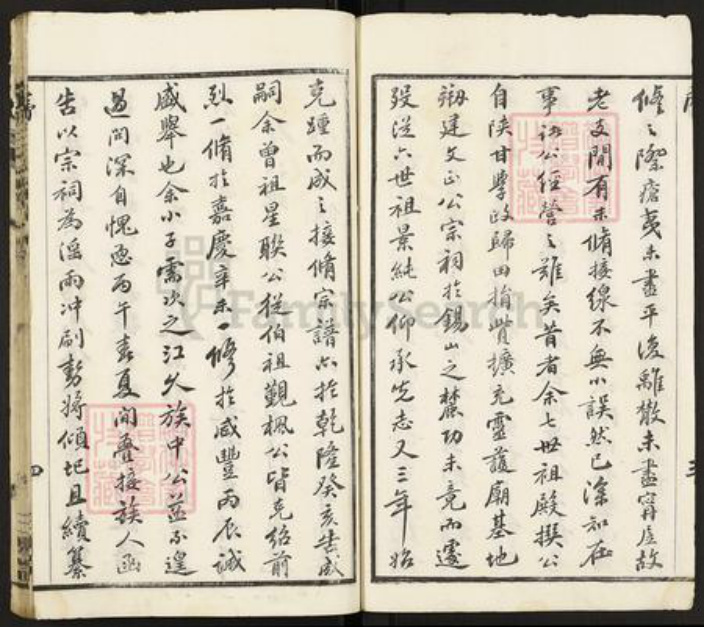 修之際瘡夷未盡平復離散未盡甯居故
老支間有未脩接線不無小誤然已深知在
事諸公經營之難矣昔者余七世祖殿撰公
自陝甘學政歸田捐貲擴充靈護廟基地
刱建文正公宗祠於錫山之麓功未竟而遽
歿從六世祖景純公仰承先志又三年始
克蕆而成之接脩宗譜亦於乾隆癸亥告成
嗣余曾祖星聯公從伯祖觀楓公皆克紹前
烈一脩於嘉慶辛未一修於咸豐丙辰誠
盛舉也余小子需次之江久族中公益不遑
過問深自愧恧丙午春夏間疊接族人函
告以宗祠為淫雨冲刷勢將傾圮且續纂
四
三
FamilySearch